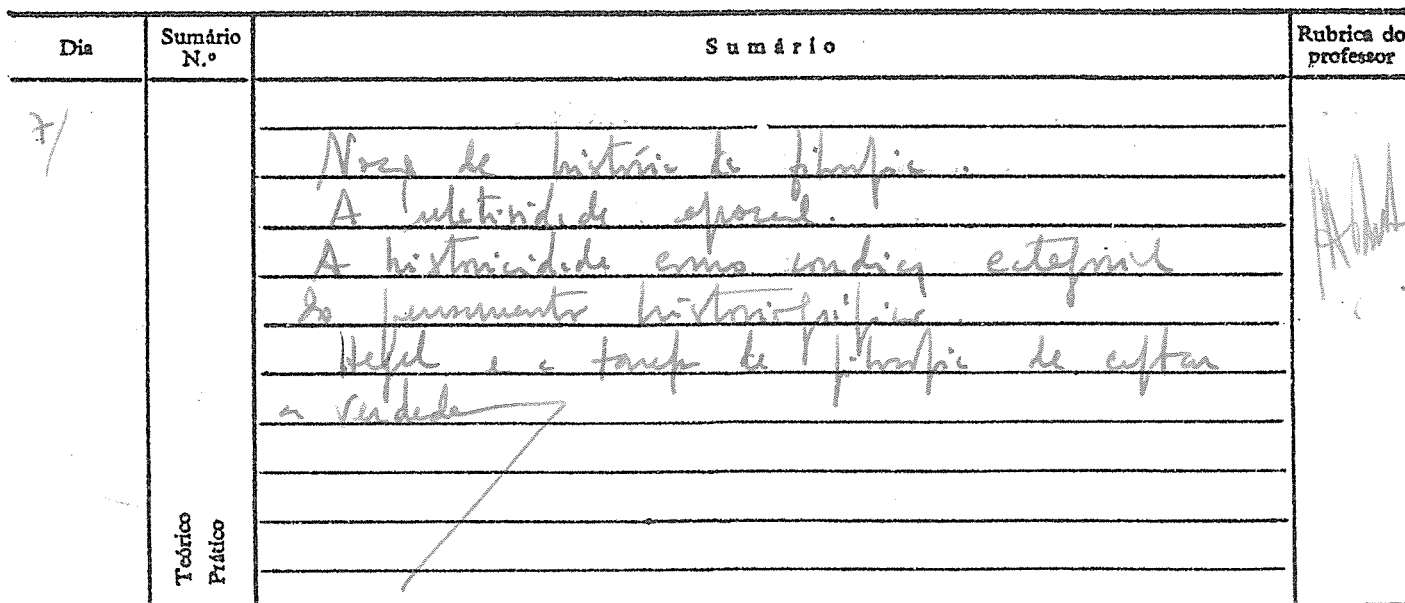 Dia
Sumário N.º
Sumário
Rubrica do professor
7/
Noção de história da filosofia.
A relatividade epocal.
A historicidade como condição categorial
do pensamento historiográfico.
Hegel e a tarefa da filosofia de captar
a verdade
Teórico
Prático